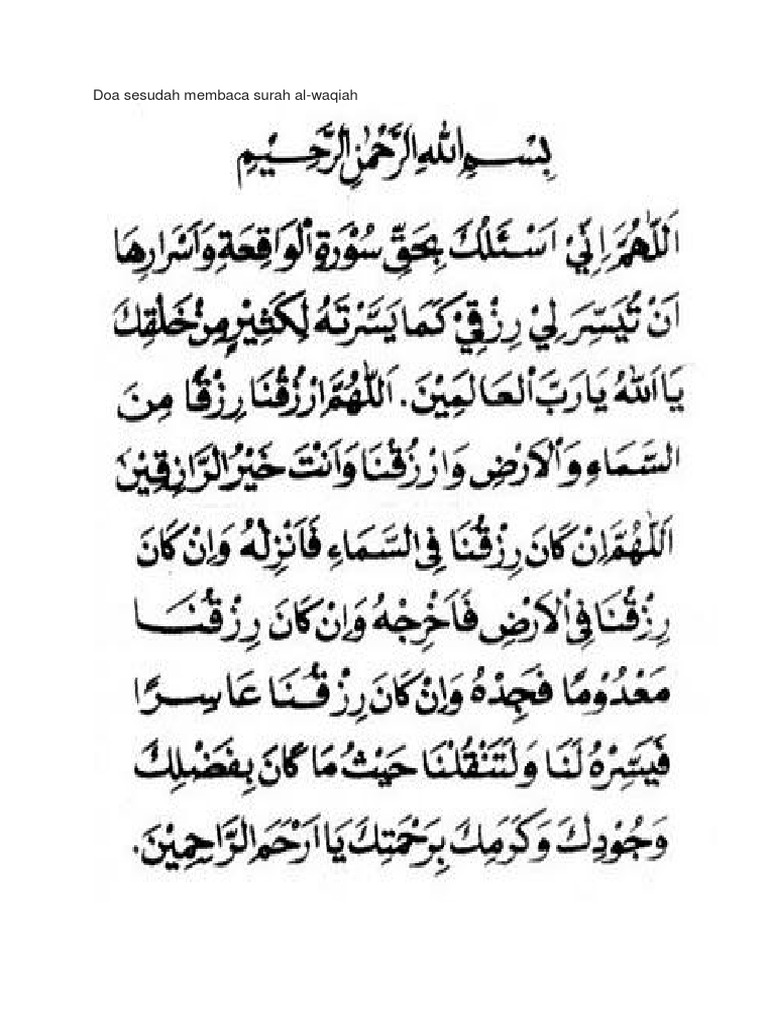 Doa sesudah membaca surah al-waqiah
بِسْمِ اللهِ الرَّحْمٰنِ الرَّحِيْمِ
اَللّٰهُمَّ اِنِّيْ اَسْئَلُكَ بِحَقِّ سُوْرَةِ الْوَاقِعَةِ وَاَسْرَارِهَا
اَنْ تُيَسِّرَ لِيْ رِزْقِيْ كَمَا يَسَّرْتَهُ لِكَثِيْرٍ مِنْ خَلْقِكَ
يَا اَللهُ يَا رَبَّ الْعَالَمِيْنَ. اَللّٰهُمَّ ارْزُقْنَا رِزْقًا مِنَ
السَّمَاءِ وَالْاَرْضِ وَارْزُقْنَا وَاَنْتَ خَيْرُ الرَّازِقِيْنَ
اَللّٰهُمَّ اِنْ كَانَ رِزْقُنَا فِى السَّمَاءِ فَاَنْزِلْهُ وَاِنْ كَانَ
رِزْقُنَا فِى الْاَرْضِ فَاَخْرِجْهُ وَاِنْ كَانَ رِزْقُنَا
مَعْدُوْمًا فَجِدْهُ وَاِنْ كَانَ رِزْقُنَا عَاسِرًا
فَيَسِّرْهُ لَنَا وَلْتَنْقُلْنَا حَيْثُ مَا كَانَ بِفَضْلِكَ
وَجُوْدِكَ وَكَرَمِكَ بِرَحْمَتِكَ يَا اَرْحَمَ الرَّاحِمِيْنَ.